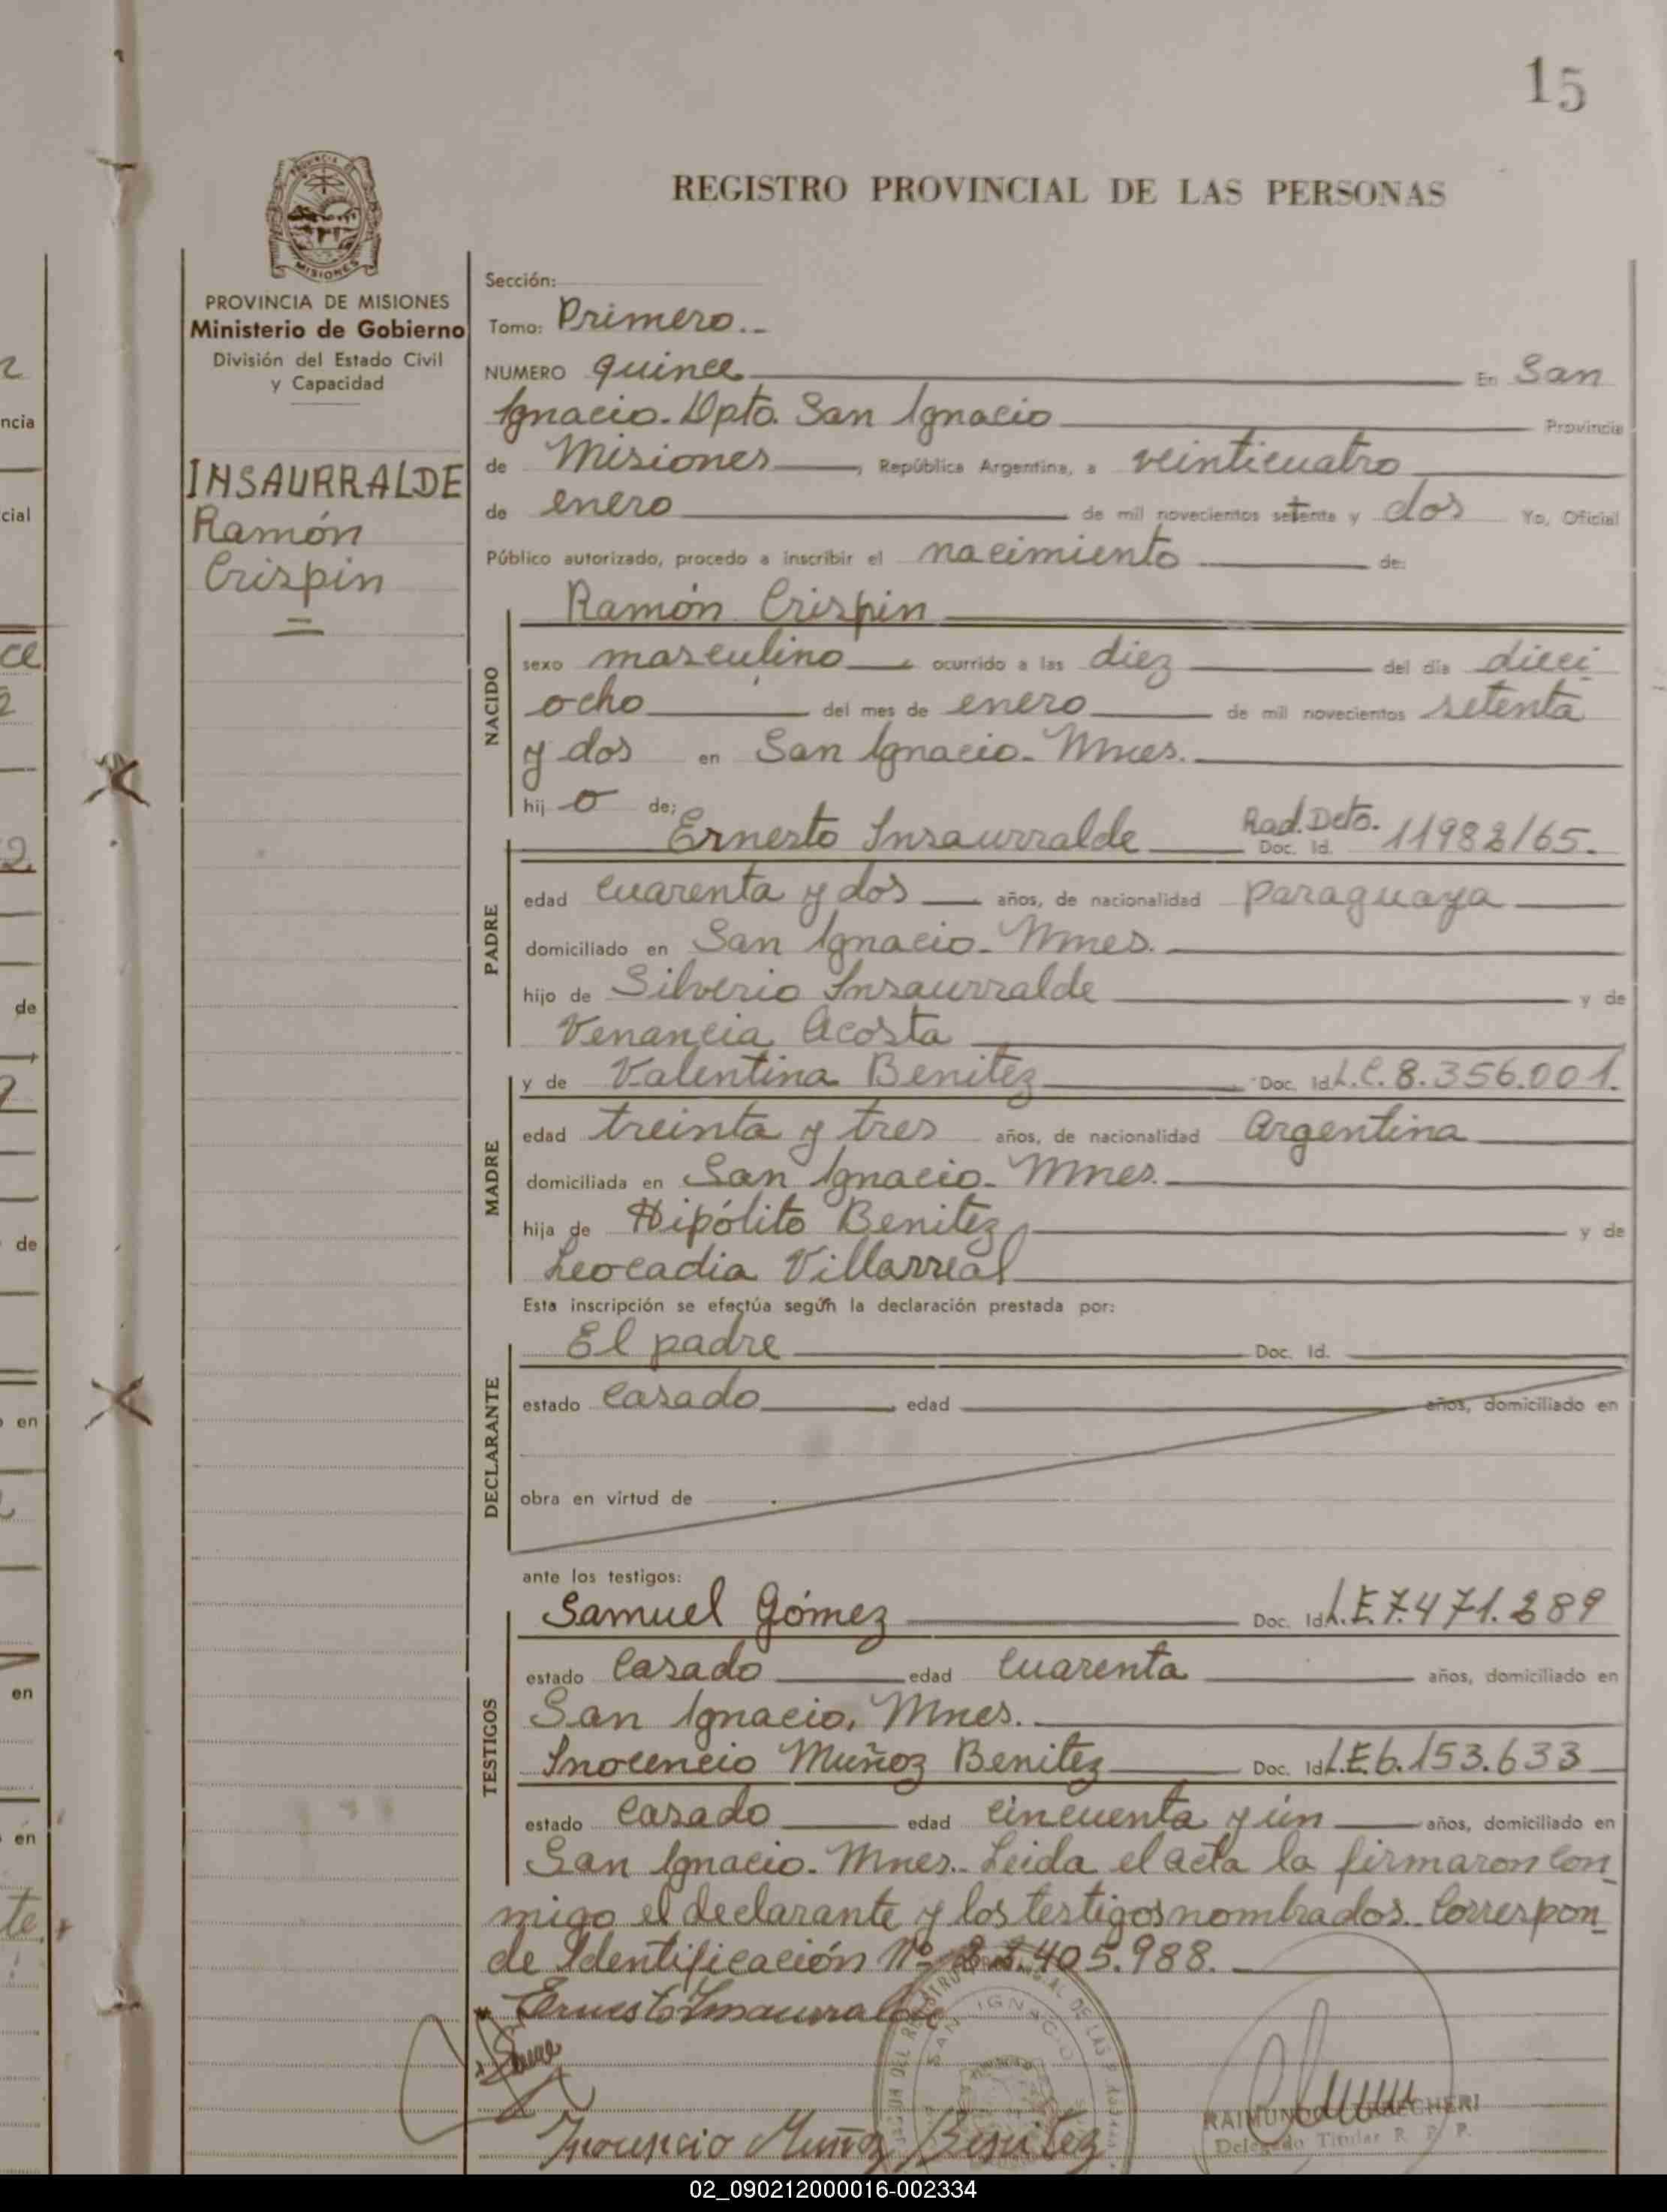 15
REGISTRO PROVINCIAL DE LAS PERSONAS
PROVINCIA DE MISIONES
Ministerio de Gobierno
División del Estado Civil
y Capacidad
INSAURRALDE
Ramón
Crispin
Sección:
Tomo: Primero.-
NUMERO quince En San
Ignacio. Dpto. San Ignacio Provincia
de Misiones, República Argentina, a veinticuatro
de enero de mil novecientos setenta y dos Yo, Oficial
Público autorizado, procedo a inscribir el nacimiento de:
NACIDO
Ramón Crispin
sexo masculino ocurrido a las diez del día dieci
ocho del mes de enero de mil novecientos setenta
y dos en San Ignacio-Mnes.
hij o de:
PADRE
Ernesto Insaurralde Rad. Dcto. Doc. Id. 11982/65.
edad cuarenta y dos años, de nacionalidad paraguaya
domiciliado en San Ignacio-Mnes.
hijo de Silverio Insaurralde y de
Venancia Acosta
MADRE
y de Valentina Benitez Doc. Id. L.C. 8.356.001.
edad treinta y tres años, de nacionalidad Argentina
domiciliada en San Ignacio-Mnes.
hija de Hipólito Benitez y de
Leocadia Villarreal
Esta inscripción se efectúa según la declaración prestada por:
DECLARANTE
El padre Doc. Id.
estado casado edad años, domiciliado en
obra en virtud de
ante los testigos:
TESTIGOS
Samuel Gómez Doc. Id. L.E. 7.471.289
estado casado edad cuarenta años, domiciliado en
San Ignacio, Mnes.
Inocencio Muñoz Benitez Doc. Id. L.E. 6.153.633
estado casado edad cincuenta y ún años, domiciliado en
San Ignacio-Mnes.- Leida el acta la firmaron con
migo el declarante y los testigos nombrados. Correspon
de Identificación Nº 22.405.988.
Ernesto Insaurralde
Inocencio Muñoz Benitez
SAN IGNACIO
Delegado Titular R. P. P.
02_090212000016-002334